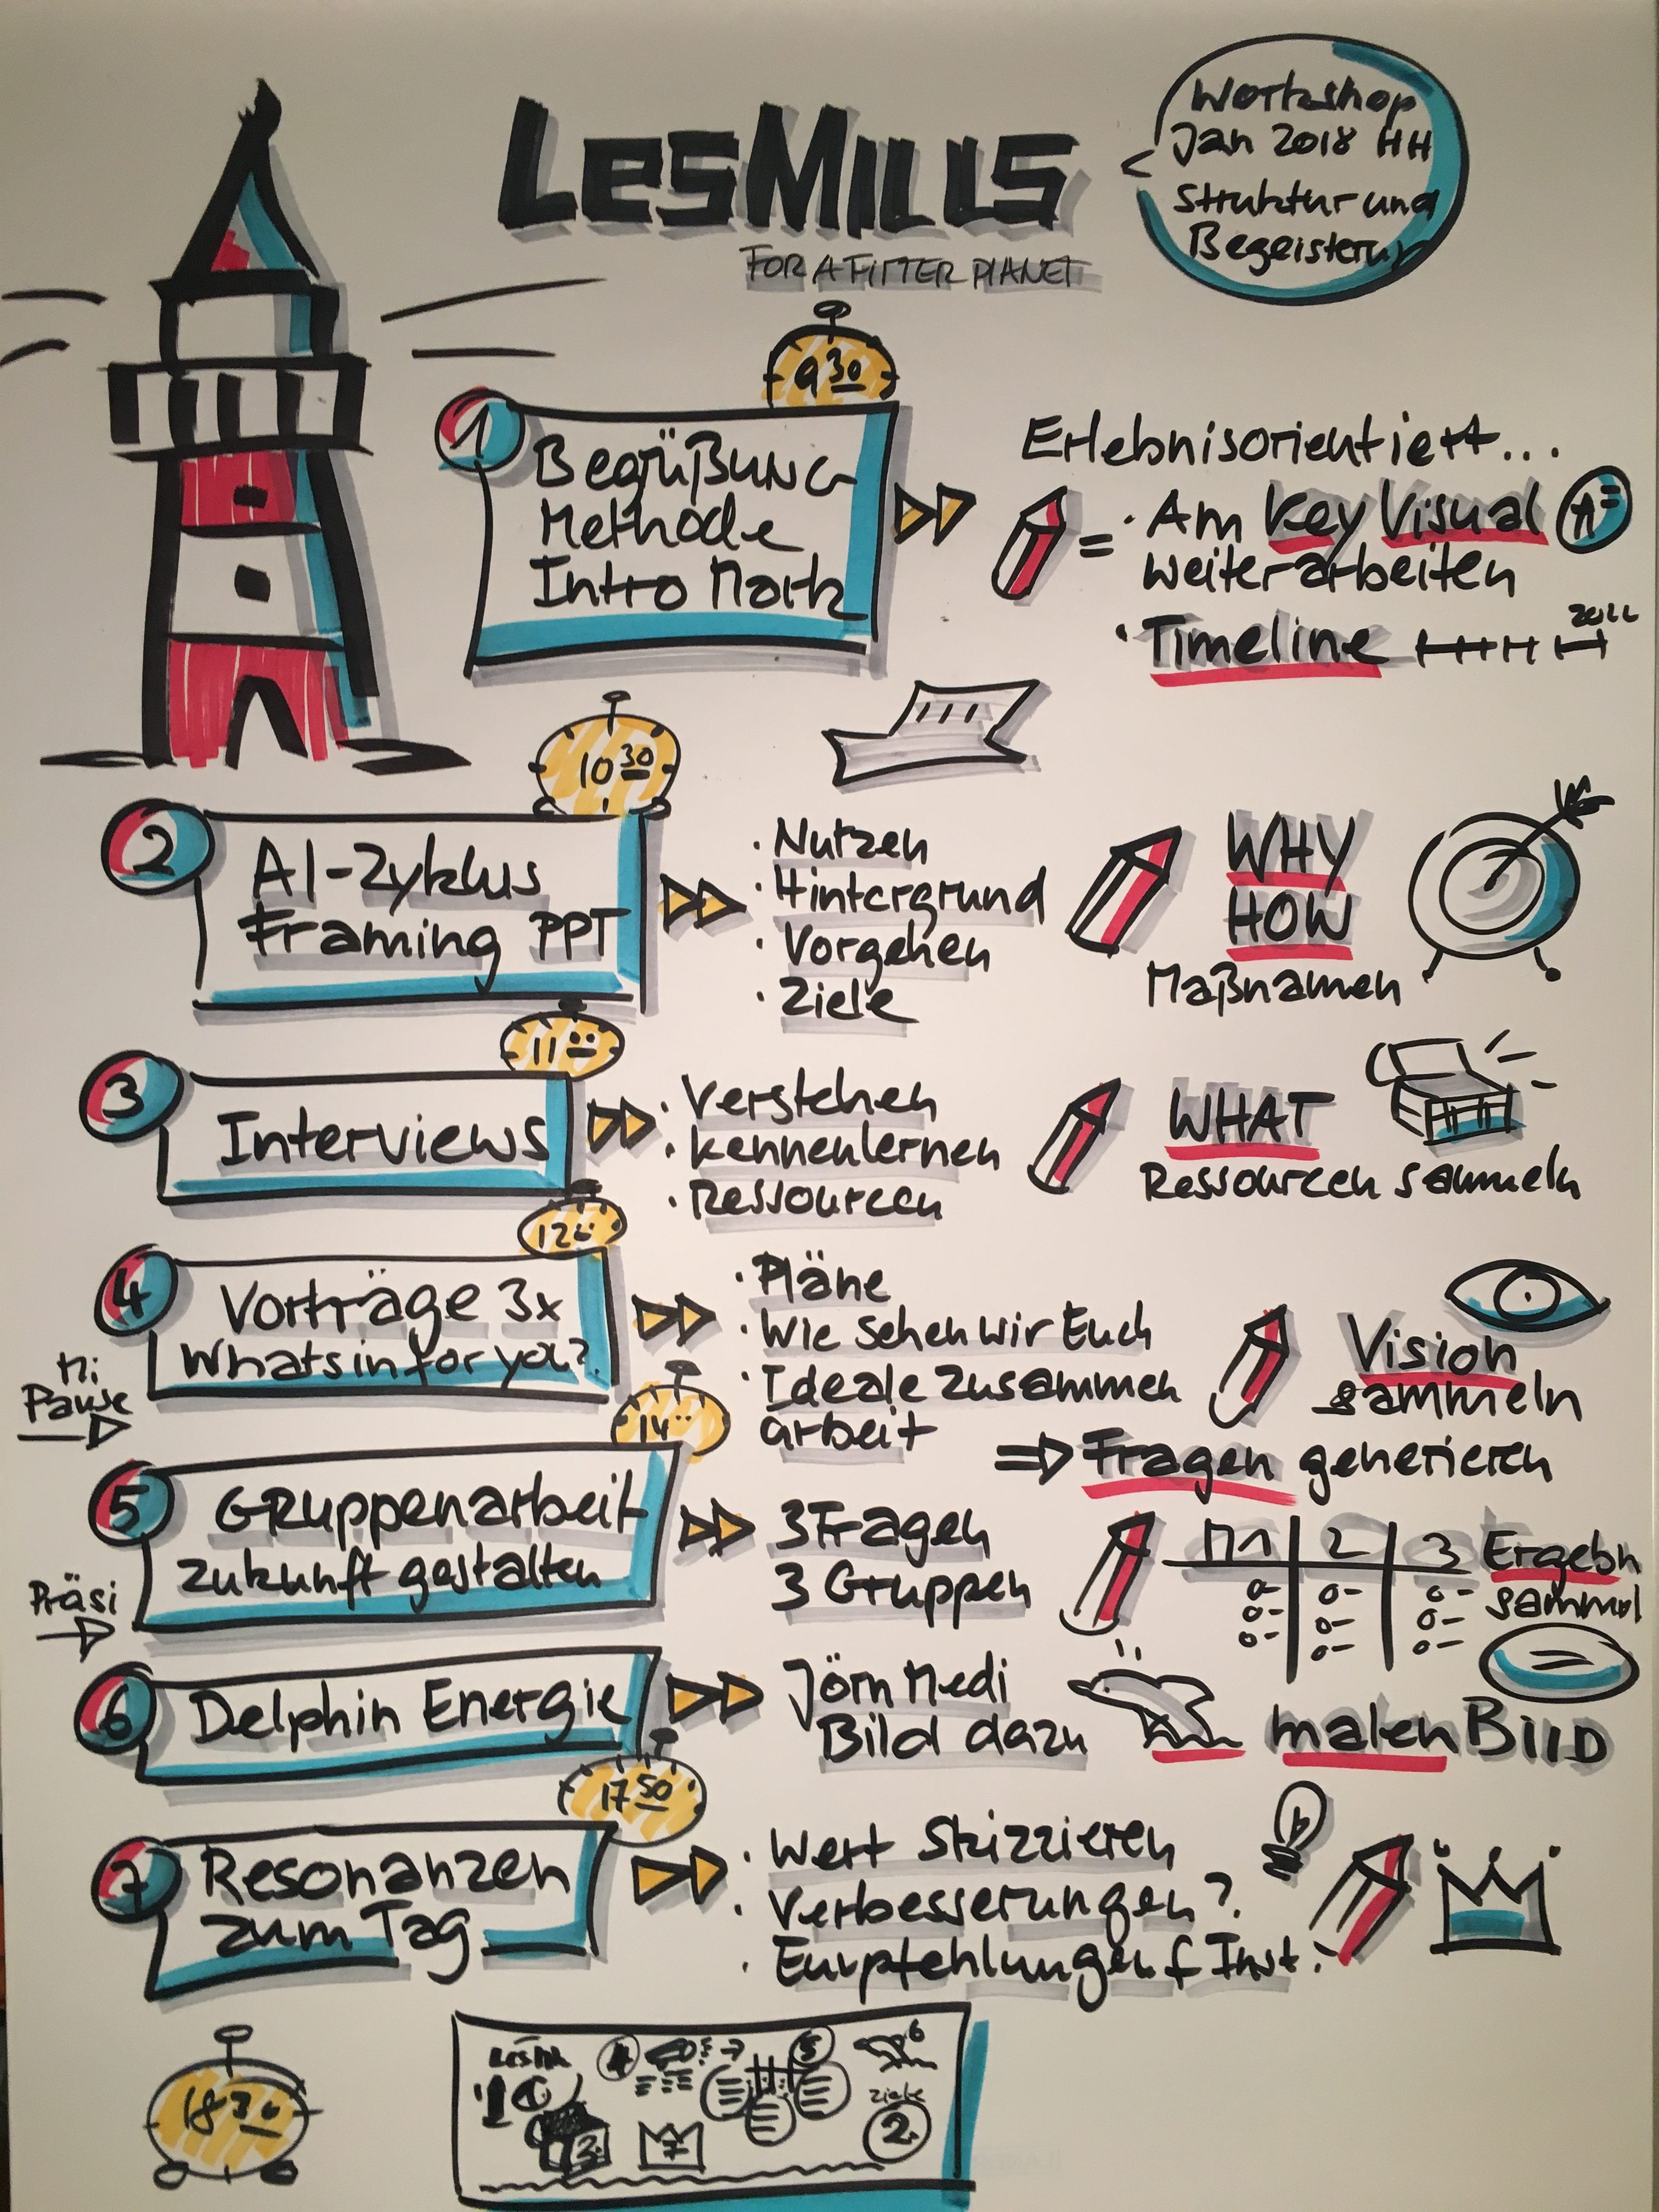 LesMills
FOR A FITTER PLANET
Workshop
Jan 2018 HH
Struktur und
Begeisterung
9 30
1
Begrüßung
Methode
Intro Mark
Erlebnisorientiert...
= · Am Key Visual
weiterarbeiten
· Timeline
10 30
2
AI-Zyklus
Framing PPT
· Nutzen
· Hintergrund
· Vorgehen
· Ziele
WHY
HOW
Maßnamen
11 00
3
Interviews
· Verstehen
· kennenlernen
· Ressourcen
WHAT
Ressourcen sammeln
12 00
4
Vorträge 3x
Whats in for you?
· Pläne
· Wie sehen wir Euch
· Ideale Zusammen
arbeit
Vision
sammeln
⇒ Fragen generieren
Mi
Pause
14 00
5
Gruppenarbeit
Zukunft gestalten
3 Fragen
3 Gruppen
1 2 3
Ergebn
sammel
Präsi
6
Delphin Energie
Jörn Medi
Bild dazu
malen BIlD
17 50
7
Resonanzen
zum Tag
· Wert Skizzieren
· Verbesserungen?
· Empfehlungen f Inst.
18 30
1
4
5
6
Ziele
2.
3.
7